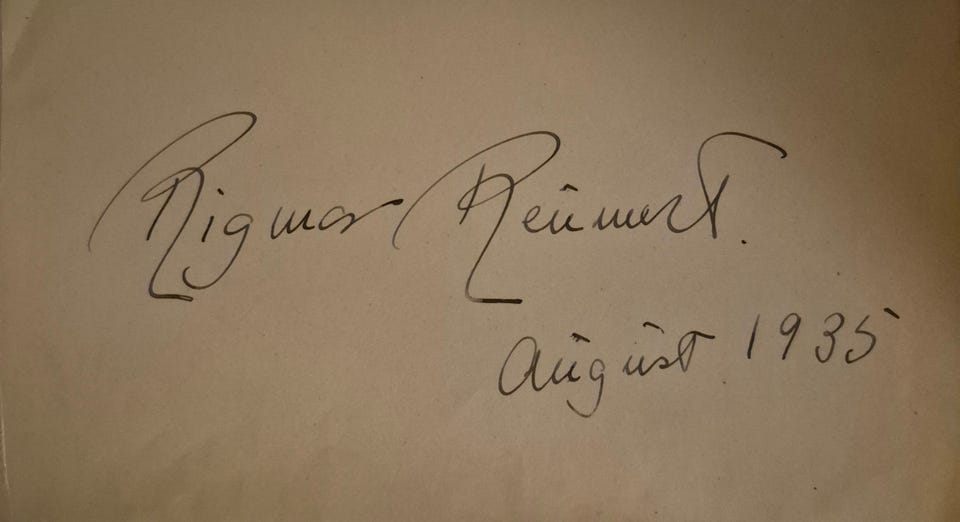 Rigmor Reumert.
August 1935